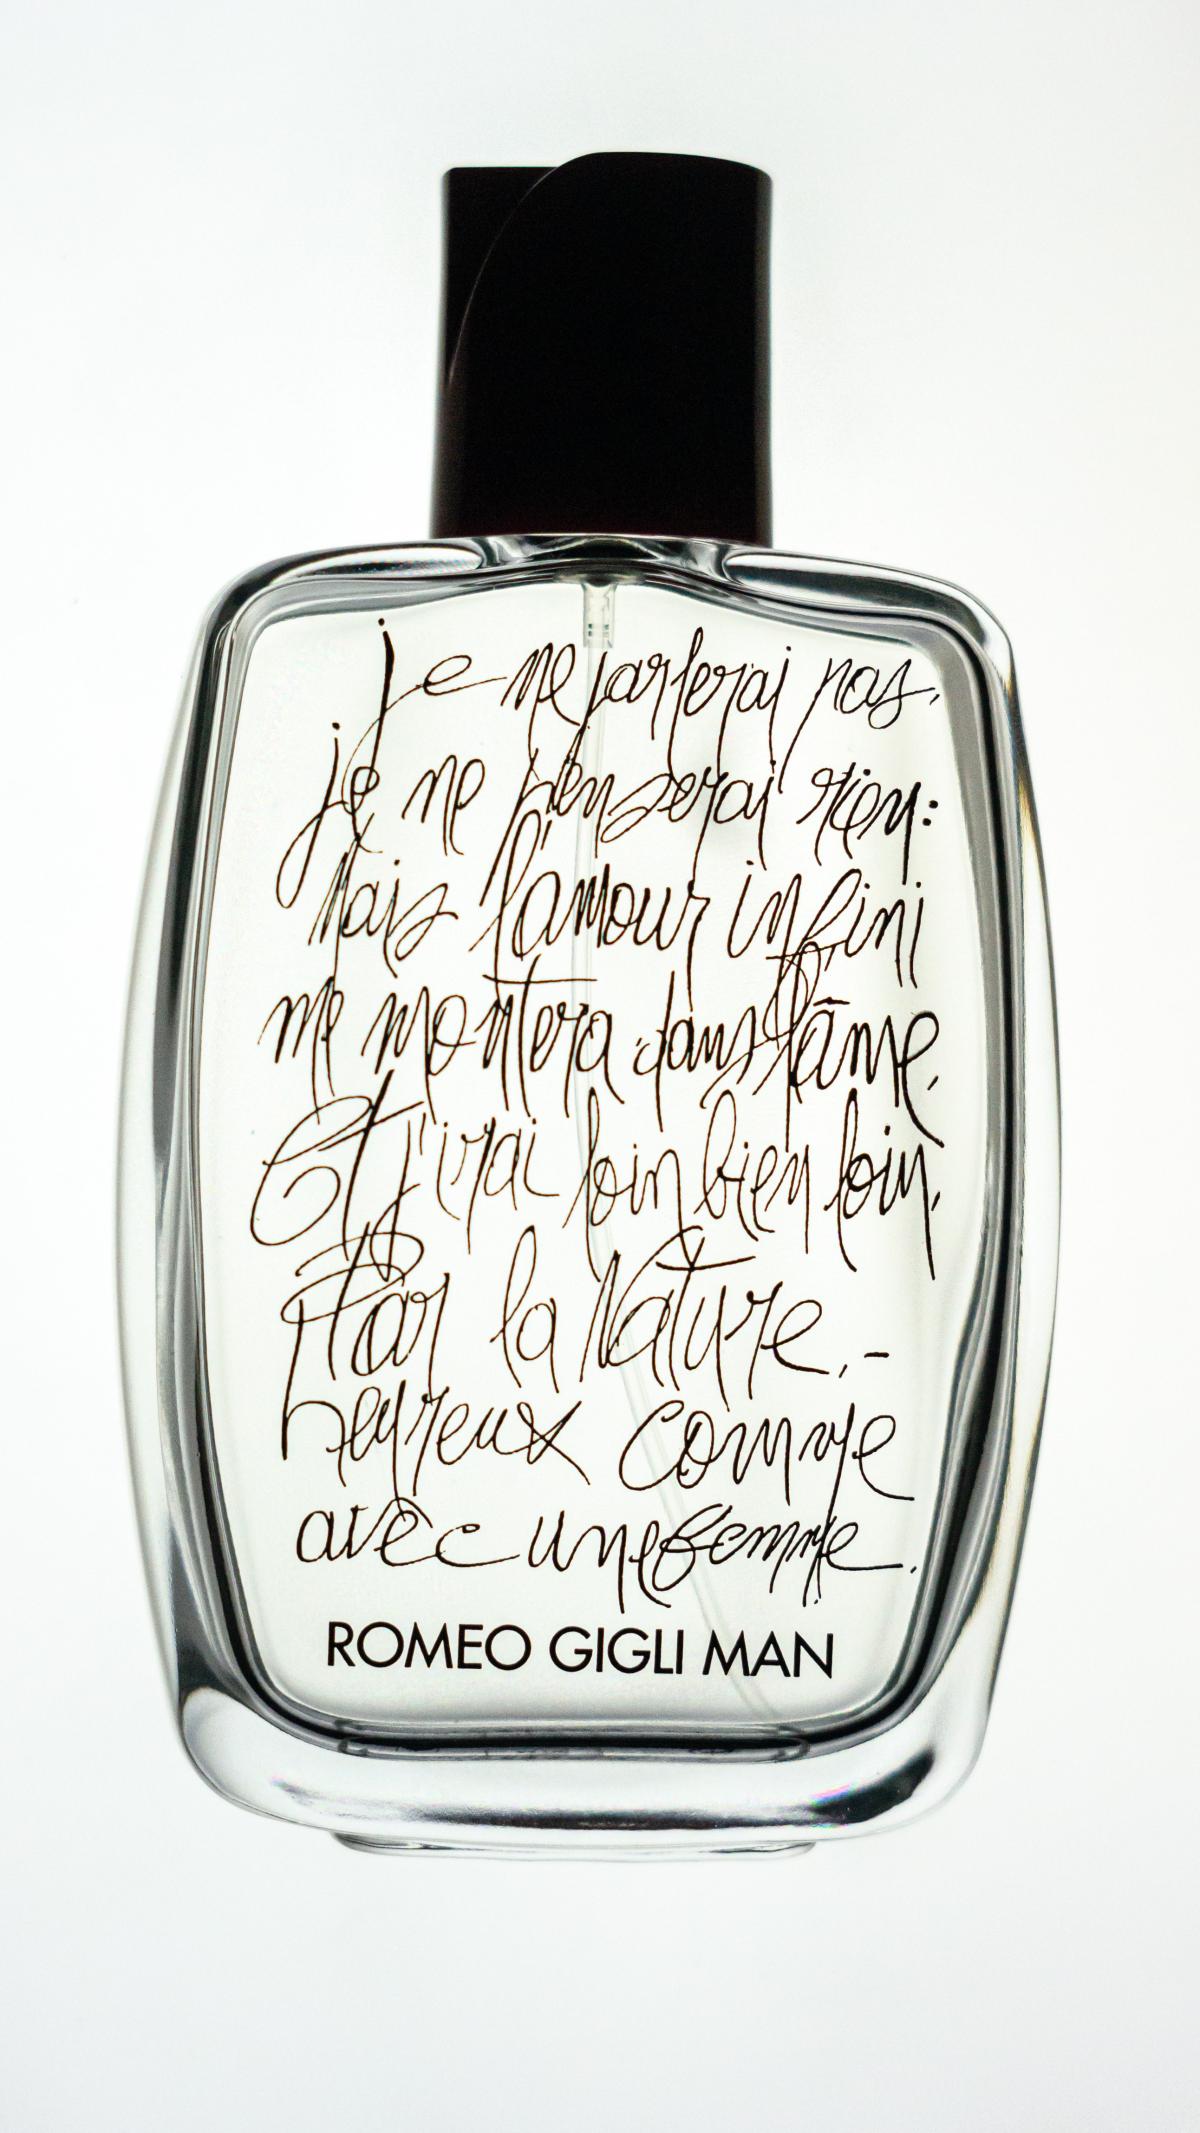 je ne parlerai pas,
je ne penserai rien:
Mais l'amour infini
me montera dans l'âme,
Et j'irai loin bien loin,
Par la Nature,-
heureux comme
avec une femme.
ROMEO GIGLI MAN